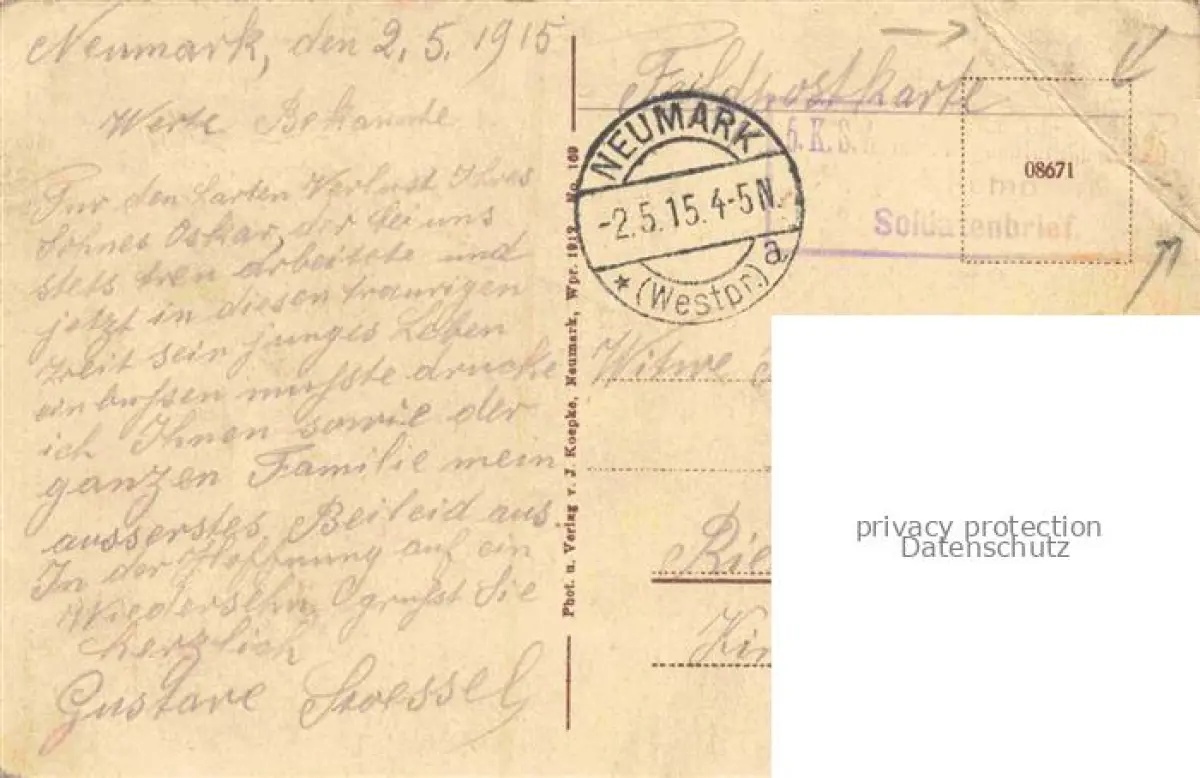 Neumark, den 2. 5. 1915
Werte Bekannte
Für den harten Verlust Ihres
Sohnes Oskar, der bei uns
stets treu arbeitete und
jetzt in diesen traurigen
Zeit sein junges Leben
einbussen musste drucke
ich Ihnen sowie der
ganzen Familie mein
ausserstes Beileid aus
In der Hoffnung auf ein
Wiedersehn grusst Sie
herzlich
Gustave Stoessel
Phot. u. Verlag v. J. Koepke, Neumark, Wpr. 1912. No. 169
Feildpostkarte
NEUMARK
-2.5.15.4-5N.
* (Westpr.) a
08671
Soldatenbrief.
Witwe
privacy protection
Datenschutz